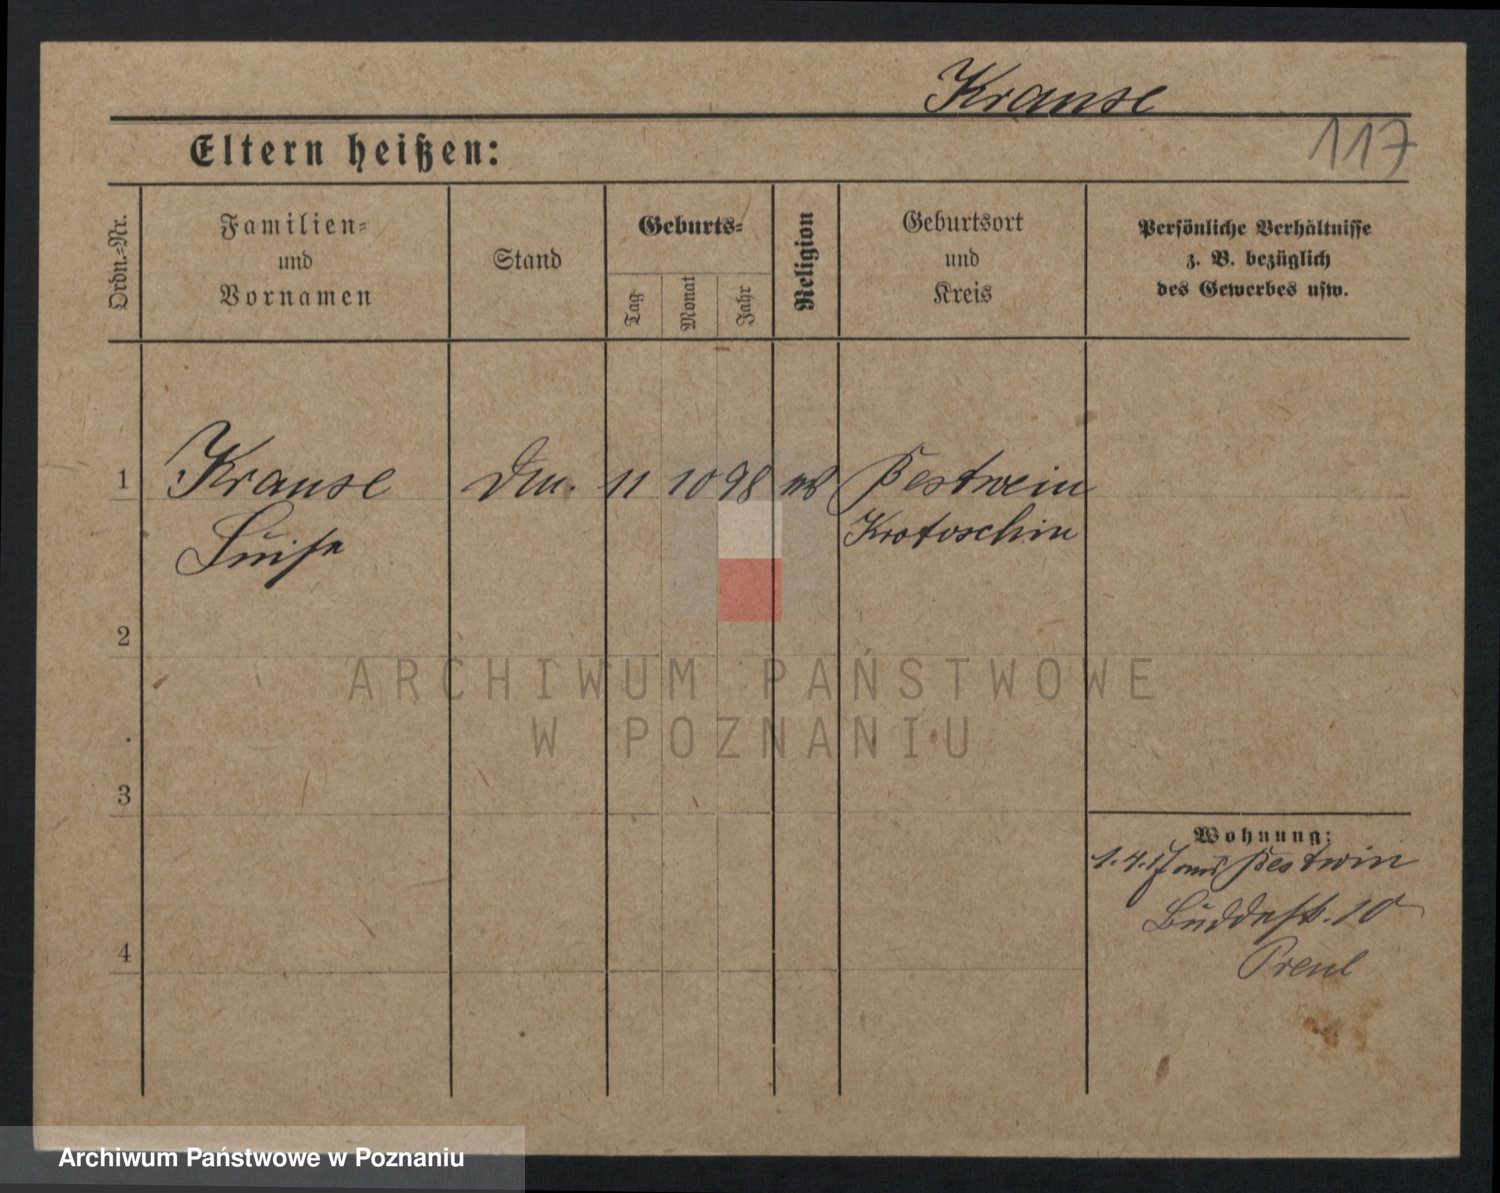 Krause
117
Eltern heißen:
Ordn.=Nr.
Familien=
und
Vornamen
Stand
Geburts=
Tag
Monat
Jahr
Religion
Geburtsort
und
Kreis
Persönliche Verhältnisse
z. B. bezüglich
des Gewerbes usw.
1
Krause
11 10 98
Bestwein
Luise
Krotoschin
2
3
4
Wohnung:
1.4.17 aus Bestwin
10
ARCHIWUM PAŃSTWOWE
W POZNANIU
Archiwum Państwowe w Poznaniu